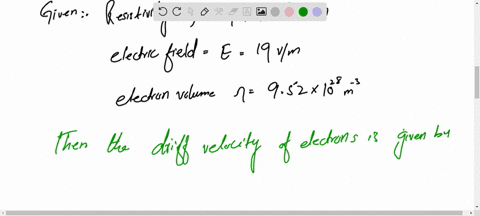 Given:- Resistivity
electric field = E = 19 v/m
electron volume n = 9.52 × 10²⁸ m⁻³
Then the driff velocity of electrons is given by